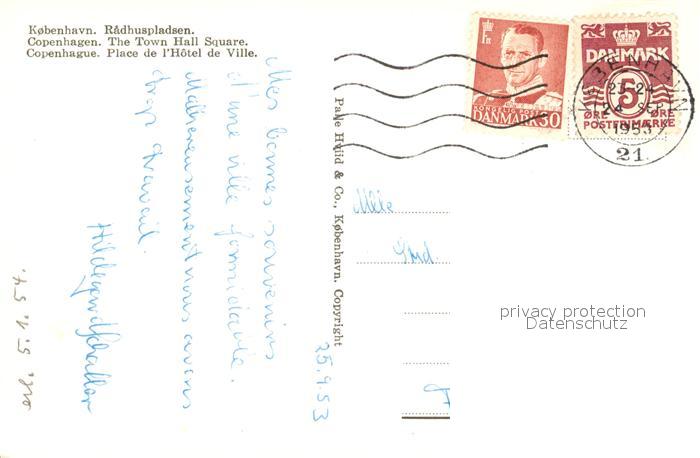 København. Rådhuspladsen.
Copenhagen. The Town Hall Square.
Copenhague. Place de l'Hôtel de Ville.
Mes bonnes souvenirs
d'une ville formidable.
Malhereusement nous avons
trop travail.
Hildegard Schaller
erl. 5.1.54.
25.9.53
Palle Hviid & Co., København. Copyright
DANMARK 30
DANMARK
5
ØRE ØRE
POSTFRIMÆRKE
KØBENHAVN
23-24
24 SEP
1953
21.
Mlle
privacy protection
Datenschutz